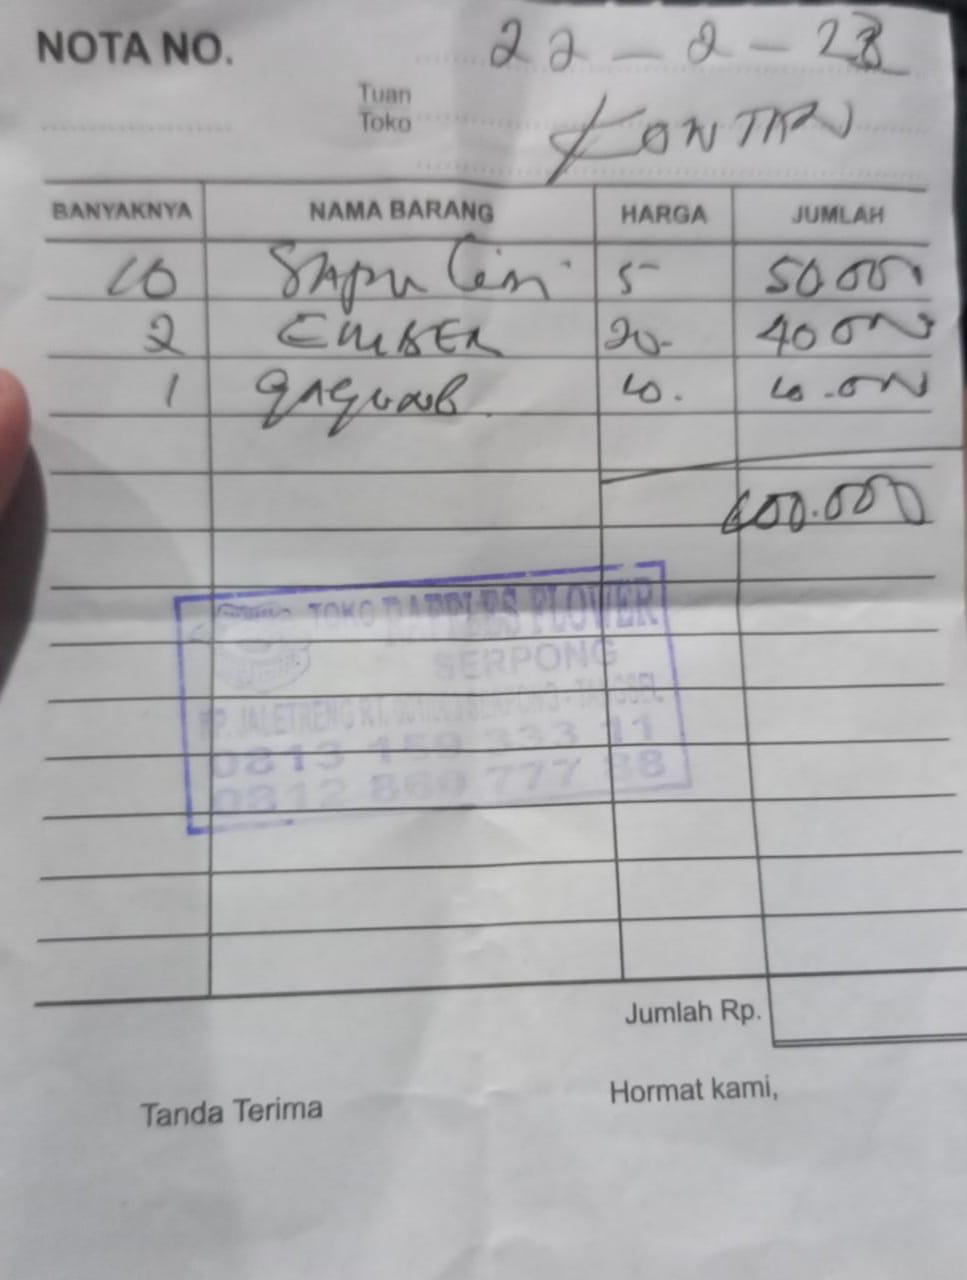 NOTA NO.
22 - 2 - 23
Tuan
Toko
KONTAN
BANYAKNYA NAMA BARANG HARGA JUMLAH
10 SAPU LIDI 5- 50.000
2 EMBER 20.- 40.000
1 10. 10.000
100.000
TOKO RAFFLES FLOWER
SERPONG
KP. JALETRENG RT. SERPONG - TANGSEL
0813 159 333 11
0812 860 777 88
Jumlah Rp.
Tanda Terima
Hormat kami,